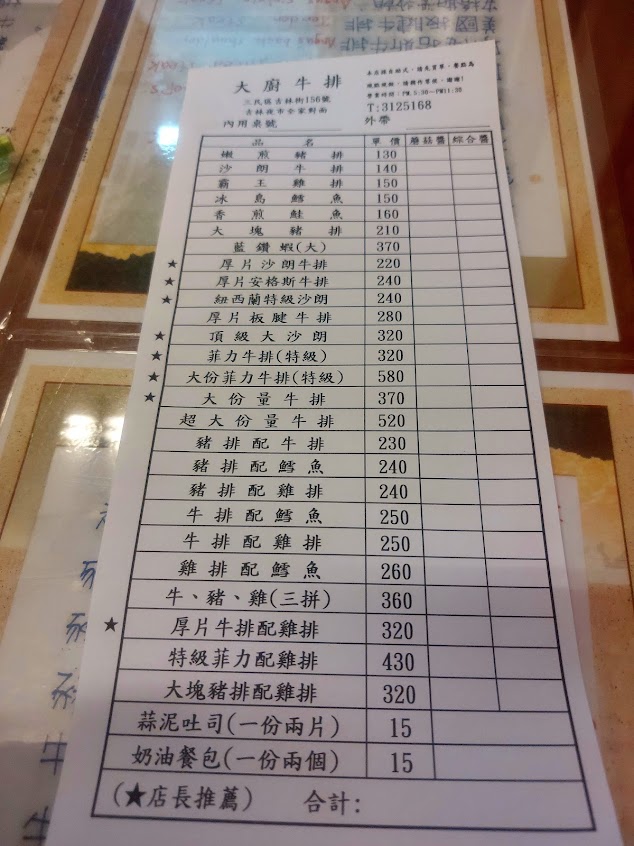 大廚牛排
三民區吉林街156號
吉林夜市全家對面
本店採自助式,請先買單,餐點為
現點現做,請稍作等候,謝謝!
營業時間:PM 5:30~PM11:30
T:3125168
內用桌號 外帶
品名 單價 蘑菇醬 綜合醬
嫩煎豬排 130
沙朗牛排 140
霸王雞排 150
冰島鱈魚 150
香煎鮭魚 160
大塊豬排 210
藍鑽蝦(大) 370
★ 厚片沙朗牛排 220
★ 厚片安格斯牛排 240
★ 紐西蘭特級沙朗 240
厚片板腱牛排 280
★ 頂級大沙朗 320
★ 菲力牛排(特級) 320
★ 大份菲力牛排(特級) 580
★ 大份量牛排 370
超大份量牛排 520
豬排配牛排 230
豬排配鱈魚 240
豬排配雞排 240
牛排配鱈魚 250
牛排配雞排 250
雞排配鱈魚 260
牛、豬、雞(三拼) 360
★ 厚片牛排配雞排 320
特級菲力配雞排 430
大塊豬排配雞排 320
蒜泥吐司(一份兩片) 15
奶油餐包(一份兩個) 15
(★店長推薦) 合計: